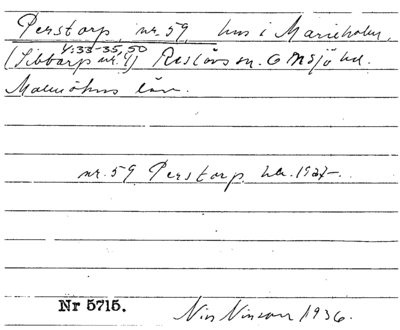 Perstorp, nr. 59, hus i Marieholm,
4:33-35,50
(Sibbarp nr. 4) Reslövs sn. Onsjö hd.
Malmöhus län.
nr. 59 Perstorp. ha. 1927-.
Nr 5715. Nils Nilsson 1936.